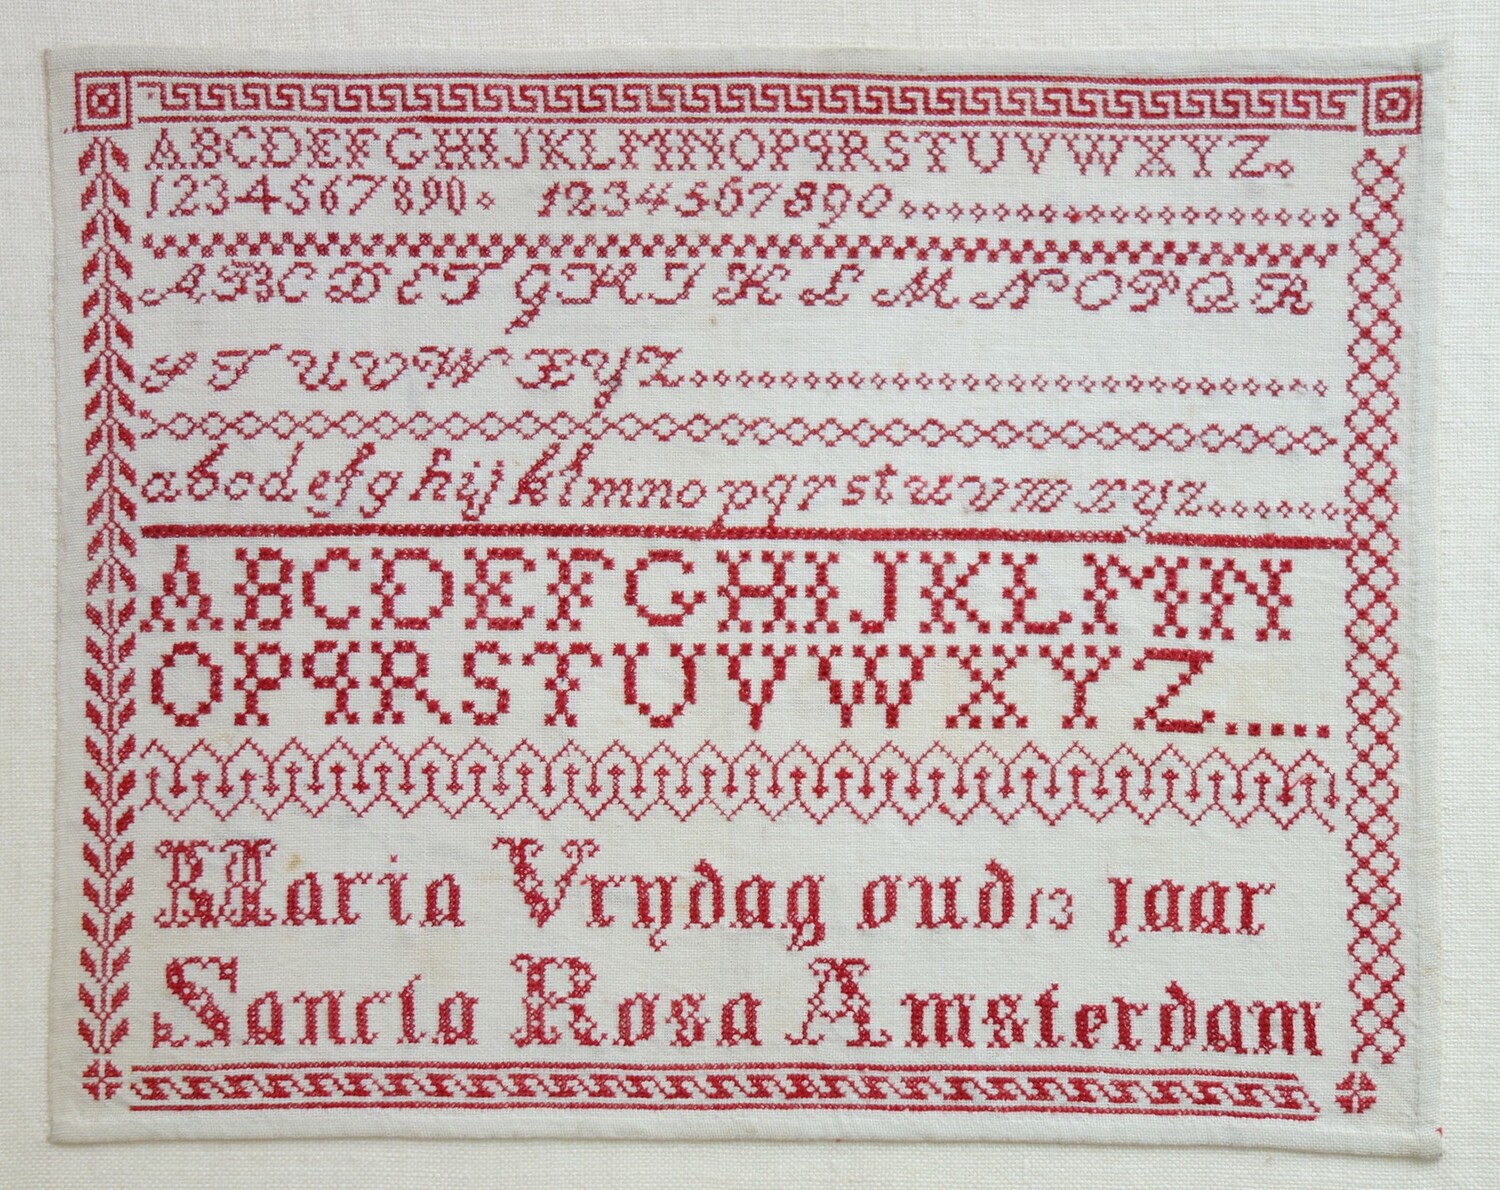 ABCDEFGHIJKLMNOPQRSTUVWXYZ
1234567890 1234567890
ABCDEFGHIJKLMNOPQR
STUVWXYZ
abcdefghijklmnopqrstuvwxyz
ABCDEFGHIJKLMN
OPQRSTUVWXYZ....
Maria Vrydag oud 13 jaar
Sancta Rosa Amsterdam